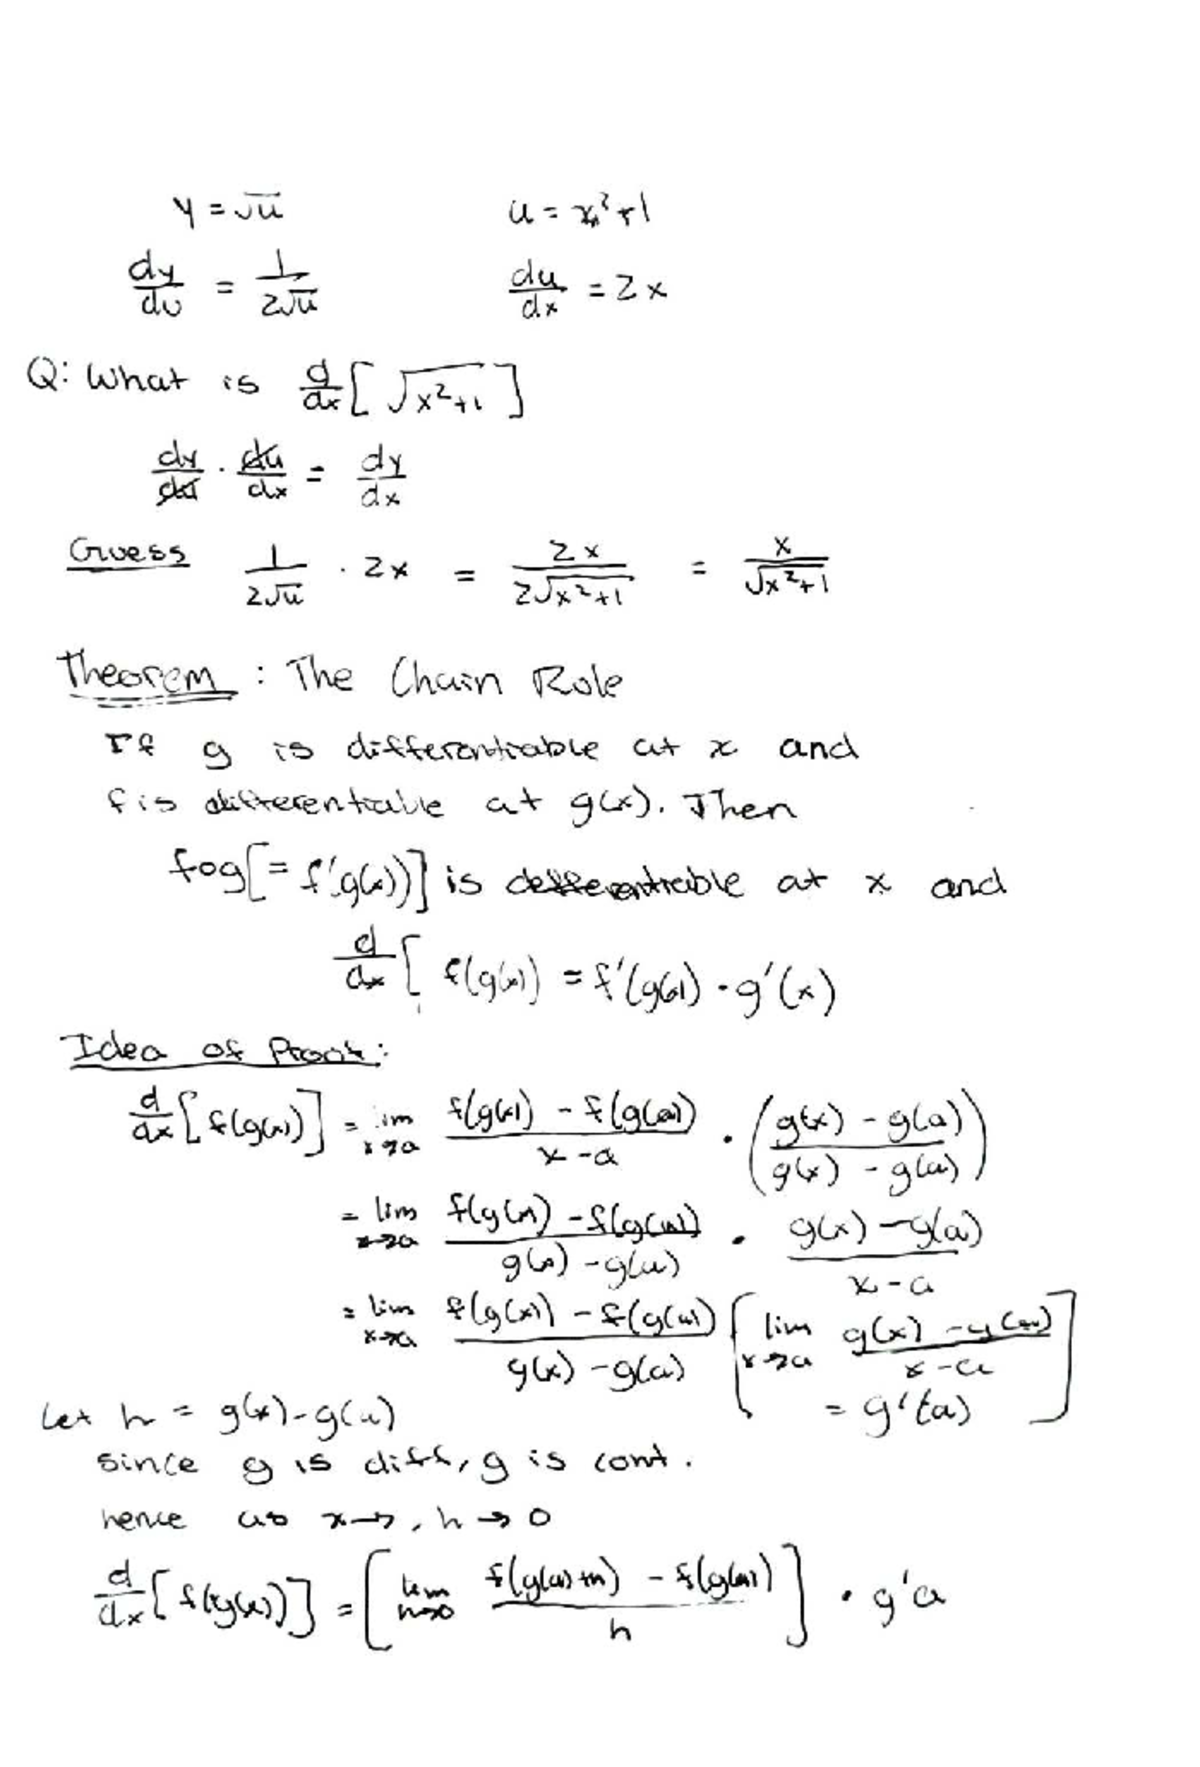 y = √u    u = x²+1
dy/du = 1/(2√u)    du/dx = 2x
Q: What is d/dx[√(x²+1)]
dy/du · du/dx = dy/dx
Guess 1/(2√u) · 2x = 2x/(2√(x²+1)) = x/√(x²+1)
Theorem : The Chain Role
If g is differentiable at x and
f is differentiable at g(x). Then
fog[= f'(g(x))] is differentiable at x and
d/dx[ f(g(x)) = f'(g(x)) · g'(x)
Idea of Proof:
d/dx[f(g(x))] = lim x→a (f(g(x)) - f(g(a)))/(x-a) · ((g(x) - g(a))/(g(x) - g(a)))
= lim x→a (f(g(x)) - f(g(a)))/(g(x) - g(a)) · (g(x) - g(a))/(x-a)
= lim x→a (f(g(x)) - f(g(a)))/(g(x) - g(a)) [lim x→a (g(x) - g(a))/(x-a)
= g'(a)]
Let h = g(x)-g(a)
since g is diff, g is cont.
hence as x→, h→0
d/dx[f(g(x))] = [lim h→0 (f(g(a)+h) - f(g(a)))/h] · g'a